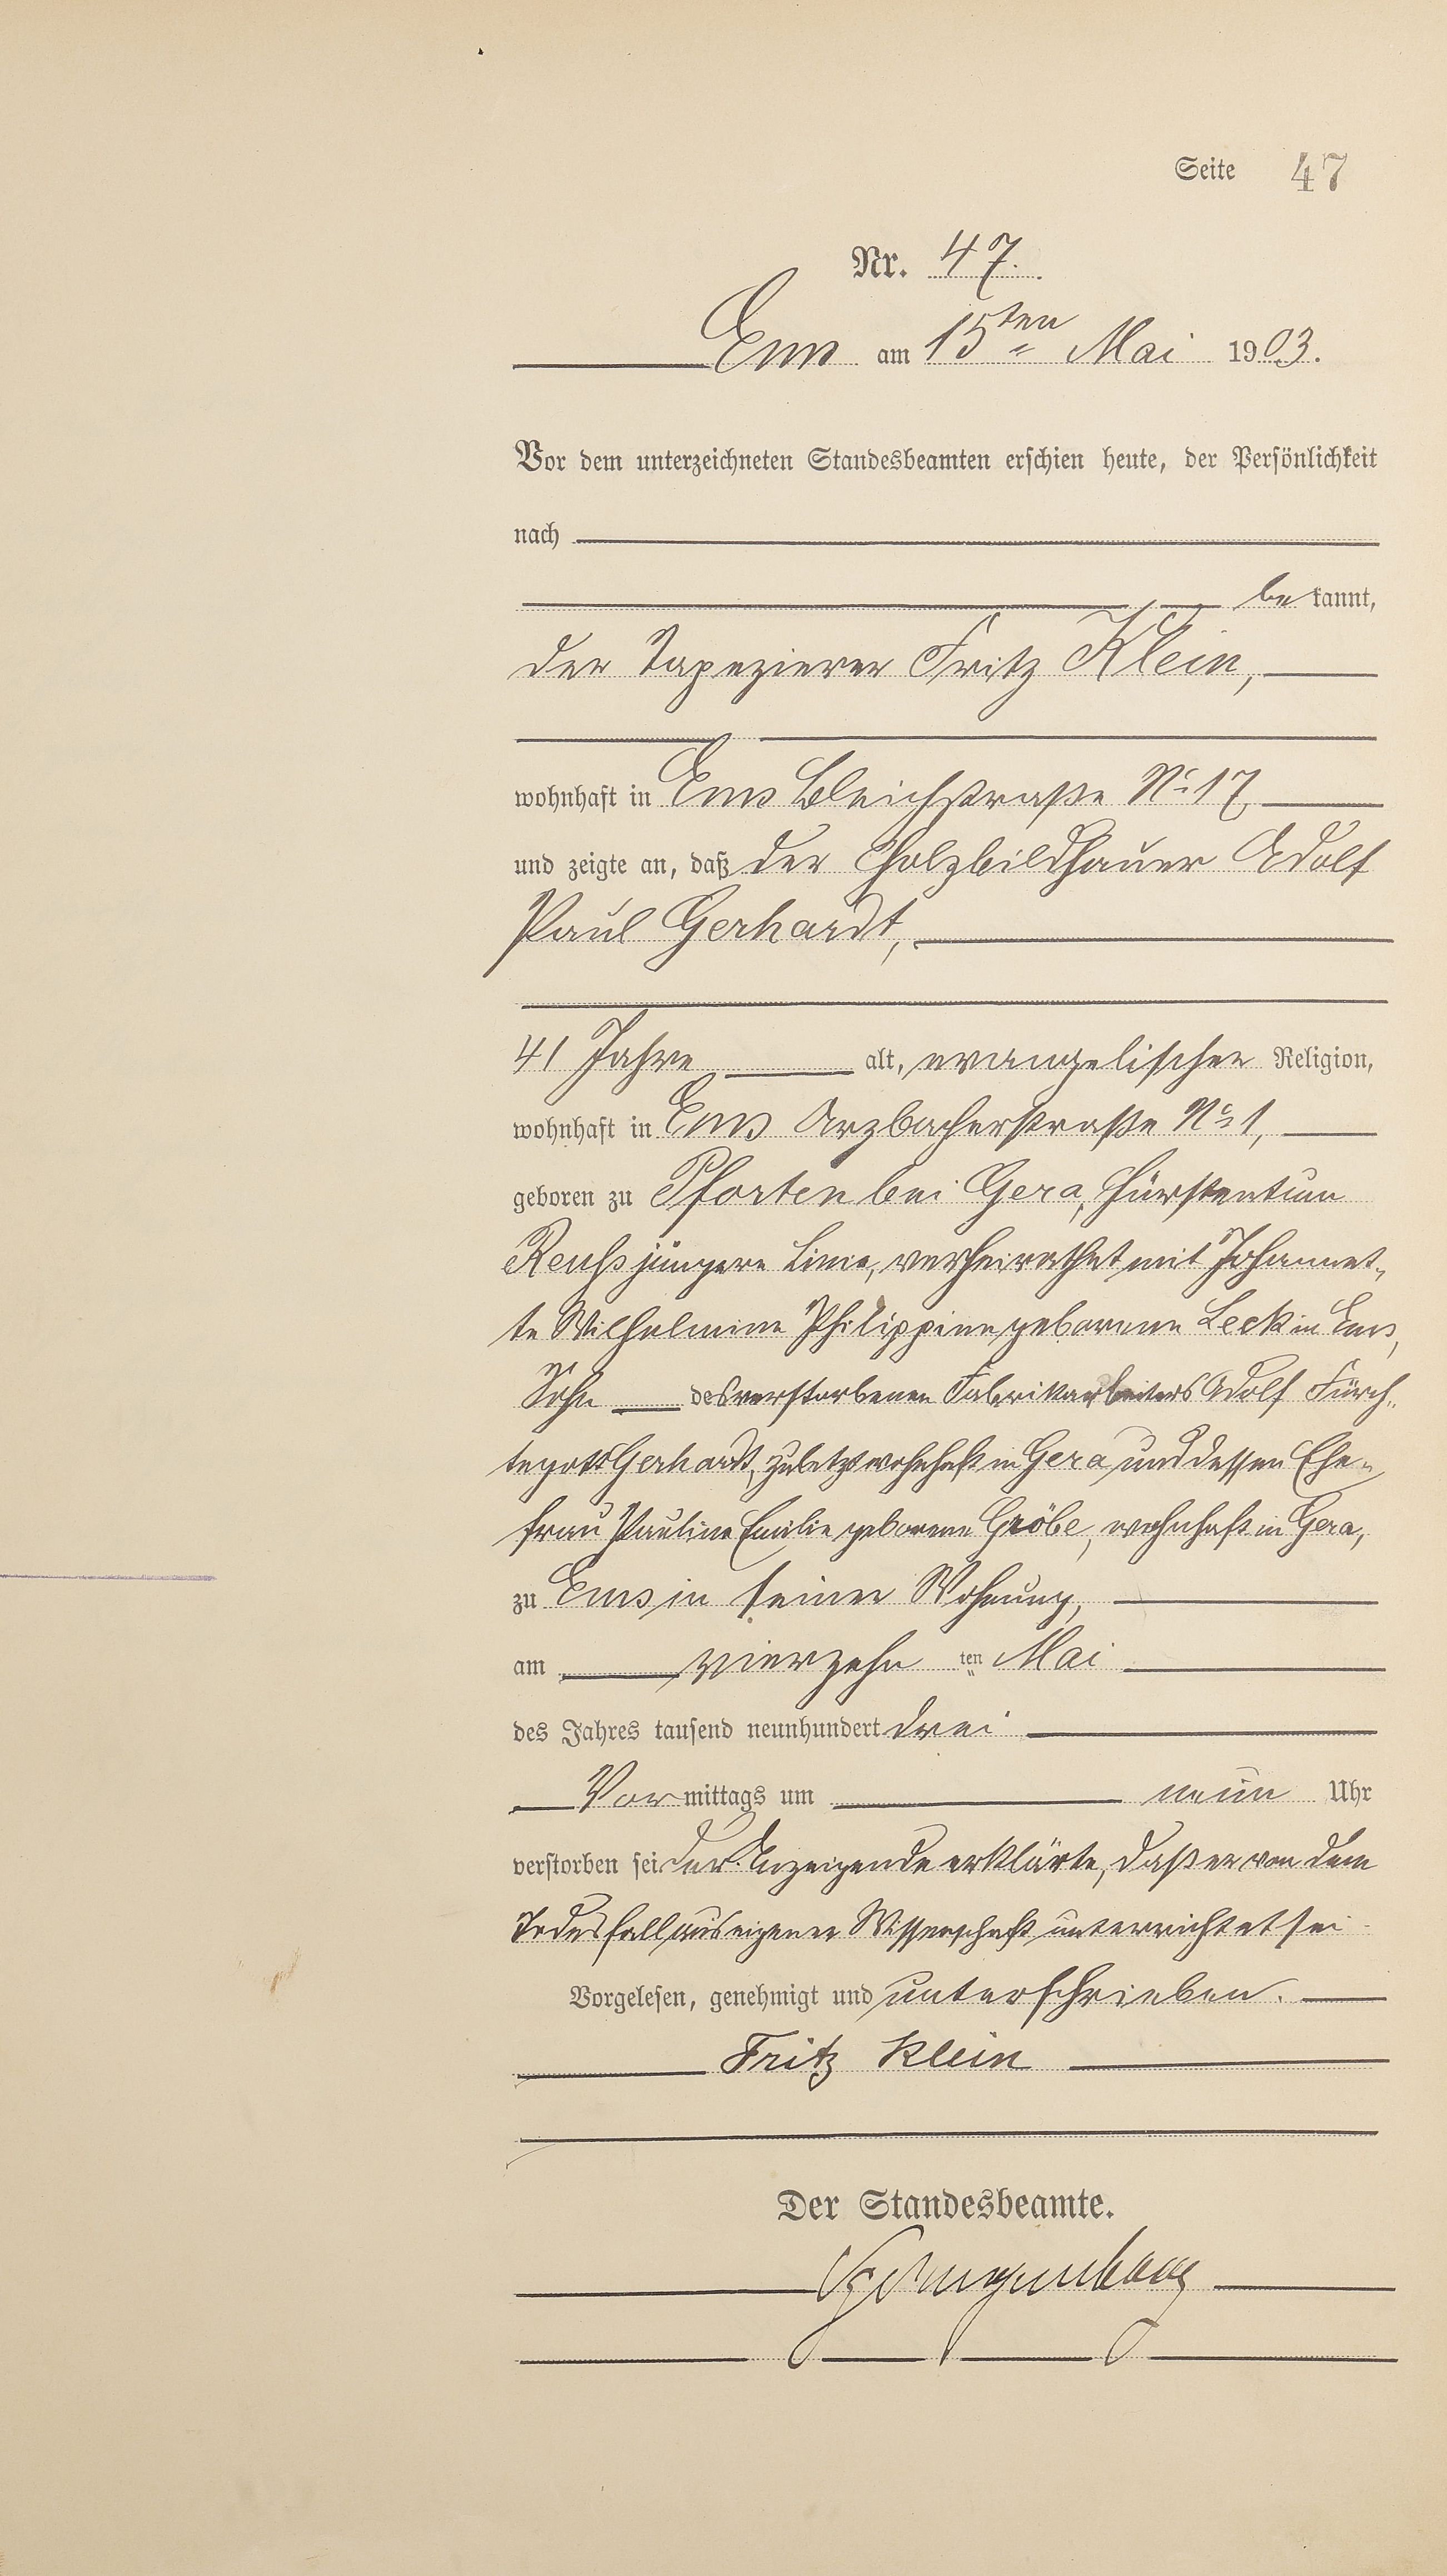 Seite 47
Nr. 47.
Ems am 15ten Mai 1903.
Vor dem unterzeichneten Standesbeamten erschien heute, der Persönlichkeit
nach
be kannt,
der Tapezierer Fritz Klein,
wohnhaft in Ems Bleichstraße No 17,
und zeigte an, daß der Holzbildhauer Adolf
Paul Gerhardt,
41 Jahre alt, evangelischer Religion,
wohnhaft in Ems Arzbacherstraße No 1,
geboren zu Pforten bei Gera, Fürstentum
Reuß jüngere Linie, verheirathet mit Johannet-
te Wilhelmine Philippine geborenen Leck in Ems,
Sohn des verstorbenen Fabrikarbeiters Adolf Fürch-
tegott Gerhardt, zuletzt wohnhaft in Gera und dessen Ehe-
frau Pauline Emilie geborene Gröbe, wohnhaft in Gera,
zu Ems in seiner Wohnung,
am vierzehn ten Mai
des Jahres tausend neunhundert drei
Vor mittags um neun Uhr
verstorben sei. Der Anzeigende erklärte, daß er von dem
Todesfall aus eigener Wissenschaft unterrichtet sei
Vorgelesen, genehmigt und unterschrieben.
Fritz Klein
Der Standesbeamte.